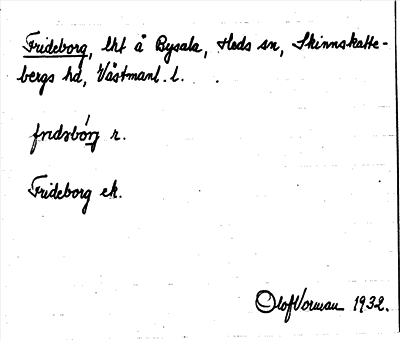 Frideborg, lht å Bysala, Heds sn, Skinnskatte-
bergs hd, Västmanl. l.
fridsbórj r.
Frideborg ek.
Olof Vorman 1932.